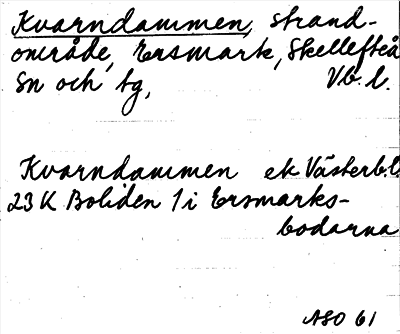 Kvarndammen, strand-
område, Ersmark, Skellefteå
sn och tg, Vb. l.
Kvarndammen ek Västerb.l.
23 K Boliden 1 i Ersmarks-
bodarna
ASO 61